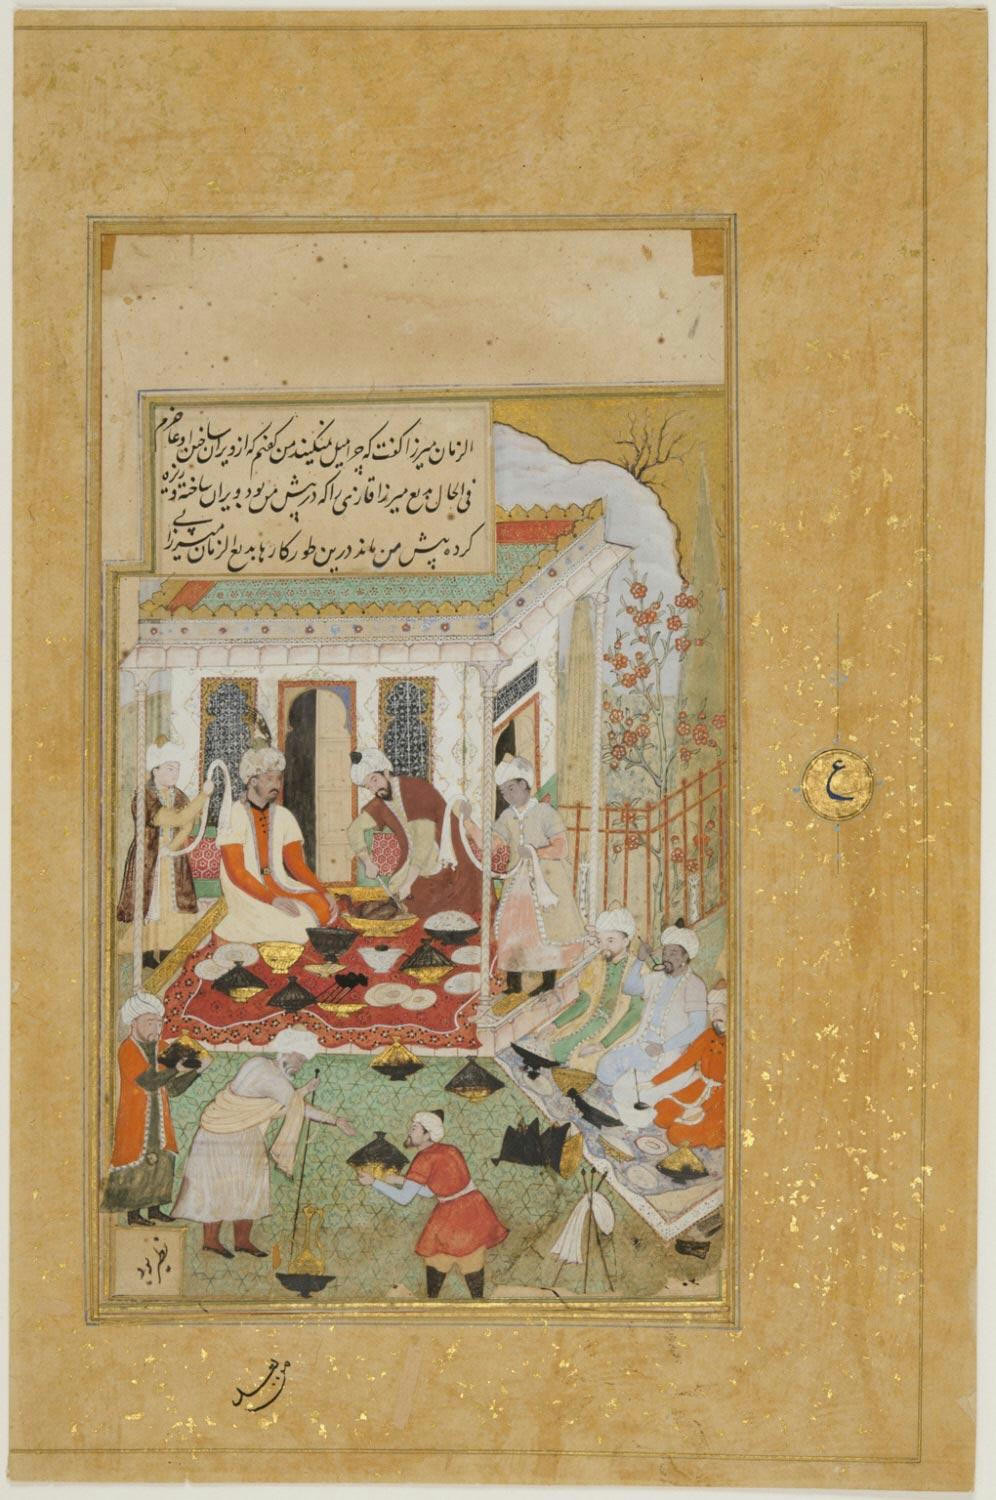 الزمان میرزا گفت که چرا میل نمیکنید من گفتم که از ویران ساختن او عاجزم
فی الحال بدیع میرزا قازی را که در پیش من بود ویران ساخته و ریزه
کرده پیش من ماند درین طور کارها بدیع الزمان میرزا بی
نظیر بود
ع